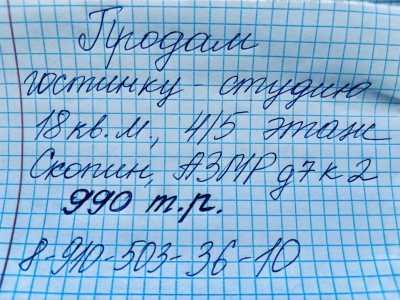 Продам
гостинку-студию
18 кв.м., 4/5 этаж
Скопин, АЗМР д7 к2
990 т.р.
8-910-503-36-10